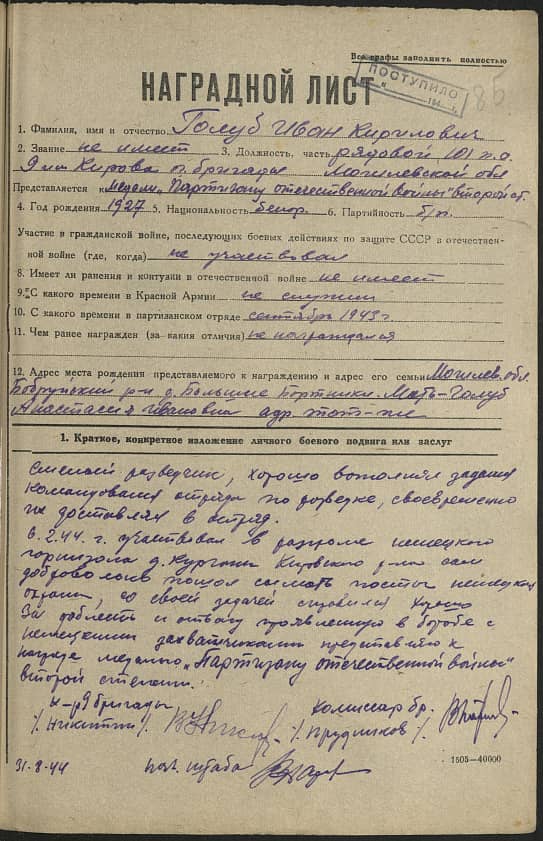 Все графы заполнить полностью
ПОСТУПИЛО
85
НАГРАДНОЙ ЛИСТ
1. Фамилия, имя и отчество Голуб Иван Кирилович
2. Звание не имеет 3. Должность, часть рядовой 101 п.о.
9 им Кирова п. бригады Могилевской обл
Представляется к медали "Партизану отечественной войны" второй ст.
4. Год рождения 1927 5. Национальность белор. 6. Партийность б/п.
Участие в гражданской войне, последующих боевых действиях по защите СССР в отечествен-
ной войне (где, когда) не участвовал
8. Имеет ли ранения и контузии в отечественной войне не имеет
9. С какого времени в Красной Армии не служил
10. С какого времени в партизанском отряде сентябрь 1943 г
11. Чем ранее награжден (за какия отличия) не награждался
12. Адрес места рождения представляемого к награждению и адрес его семьи Могилев. обл.
Бобруйский р-н д. Большие Бортники. Мать-Голуб
Анастасия Ивановна адр. тот-же
1. Краткое, конкретное изложение личного боевого подвига или заслуг
Смелый разведчик, хорошо выполнял задания
командования отряда по разведке, своевременно
их доставлял в отряд.
6.2.44 г. участвовал в разгроме немецкого
гарнизона д. Кургани Кировского р-на сам
добровольно пошол снимать посты немецкой
охраны, со своей задачей справился хорошо
За доблесть и отвагу проявленную в борьбе с
немецкими захватчиками представляю к
награде медалью "Партизану отечественной войны"
второй степени.
К-р 9 бригады
/Никитин/
Комиссар бр.
/Прудников/
31-8-44
нач. штаба
1505—40000